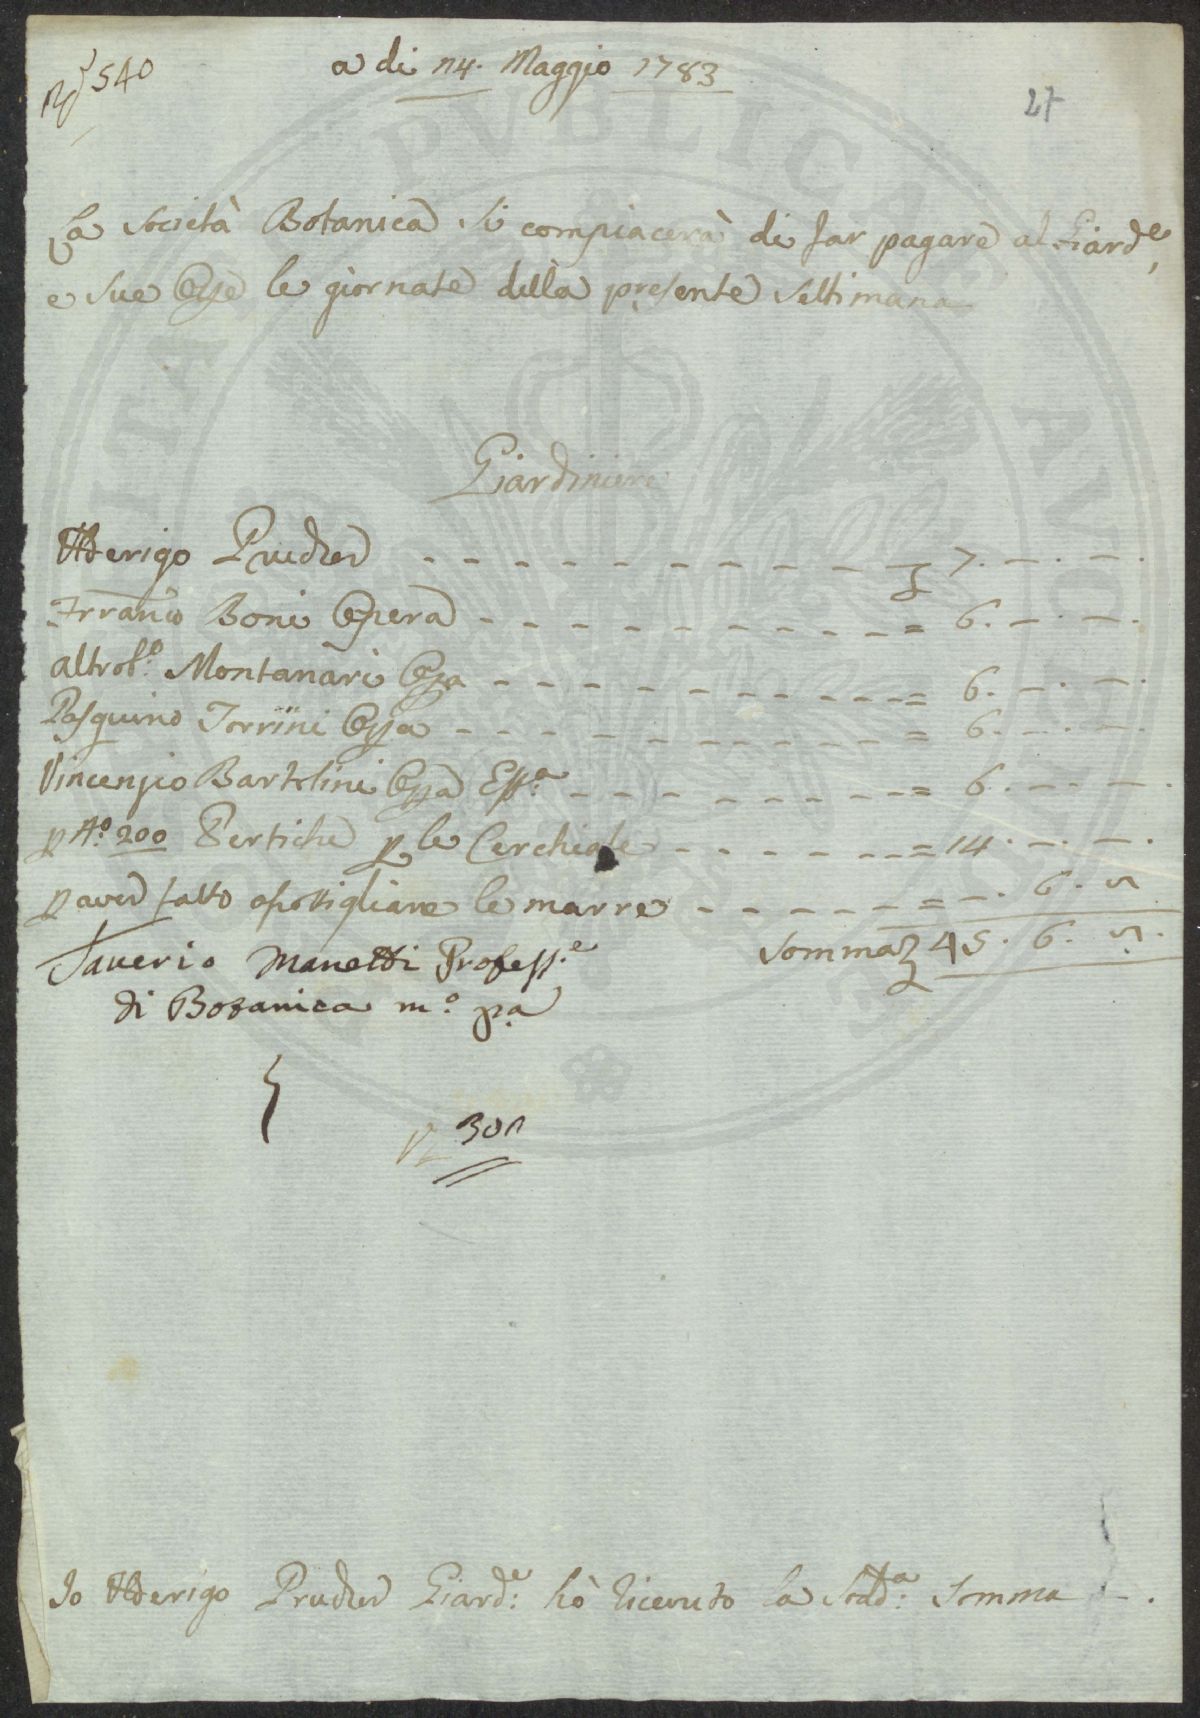 540
a di 14. Maggio 1783
27
La Società Botanica si compiacerà di far pagare al Giard.e
e sue Oppe le giornate della presente Settimana
Giardiniere
Prucher - - - - - - - - - - - 7. — . — .
Boni Opera - - - - - - - - - - = 6. — . — .
altro f.o Montanari Oppa - - - - - - - - - - = 6. — . — .
Pasquino Torrini Oppa - - - - - - - - - - = 6. — . — .
Vincenzio Bartolini Oppa - - - - - - - - = 6. — . — .
p N.o 200 Pertiche p le Cerchiate - - - - - - = 14. — . — .
p aver fatto le marre - - - - - - = — . 6. 8
Somma 45. 6. 8.
Saverio Manetti Profess.e
di Botanica m.o pa
301
Io Prucher Giard.e hò ricevuto la Sudd.a Somma — .
PVBLICAE